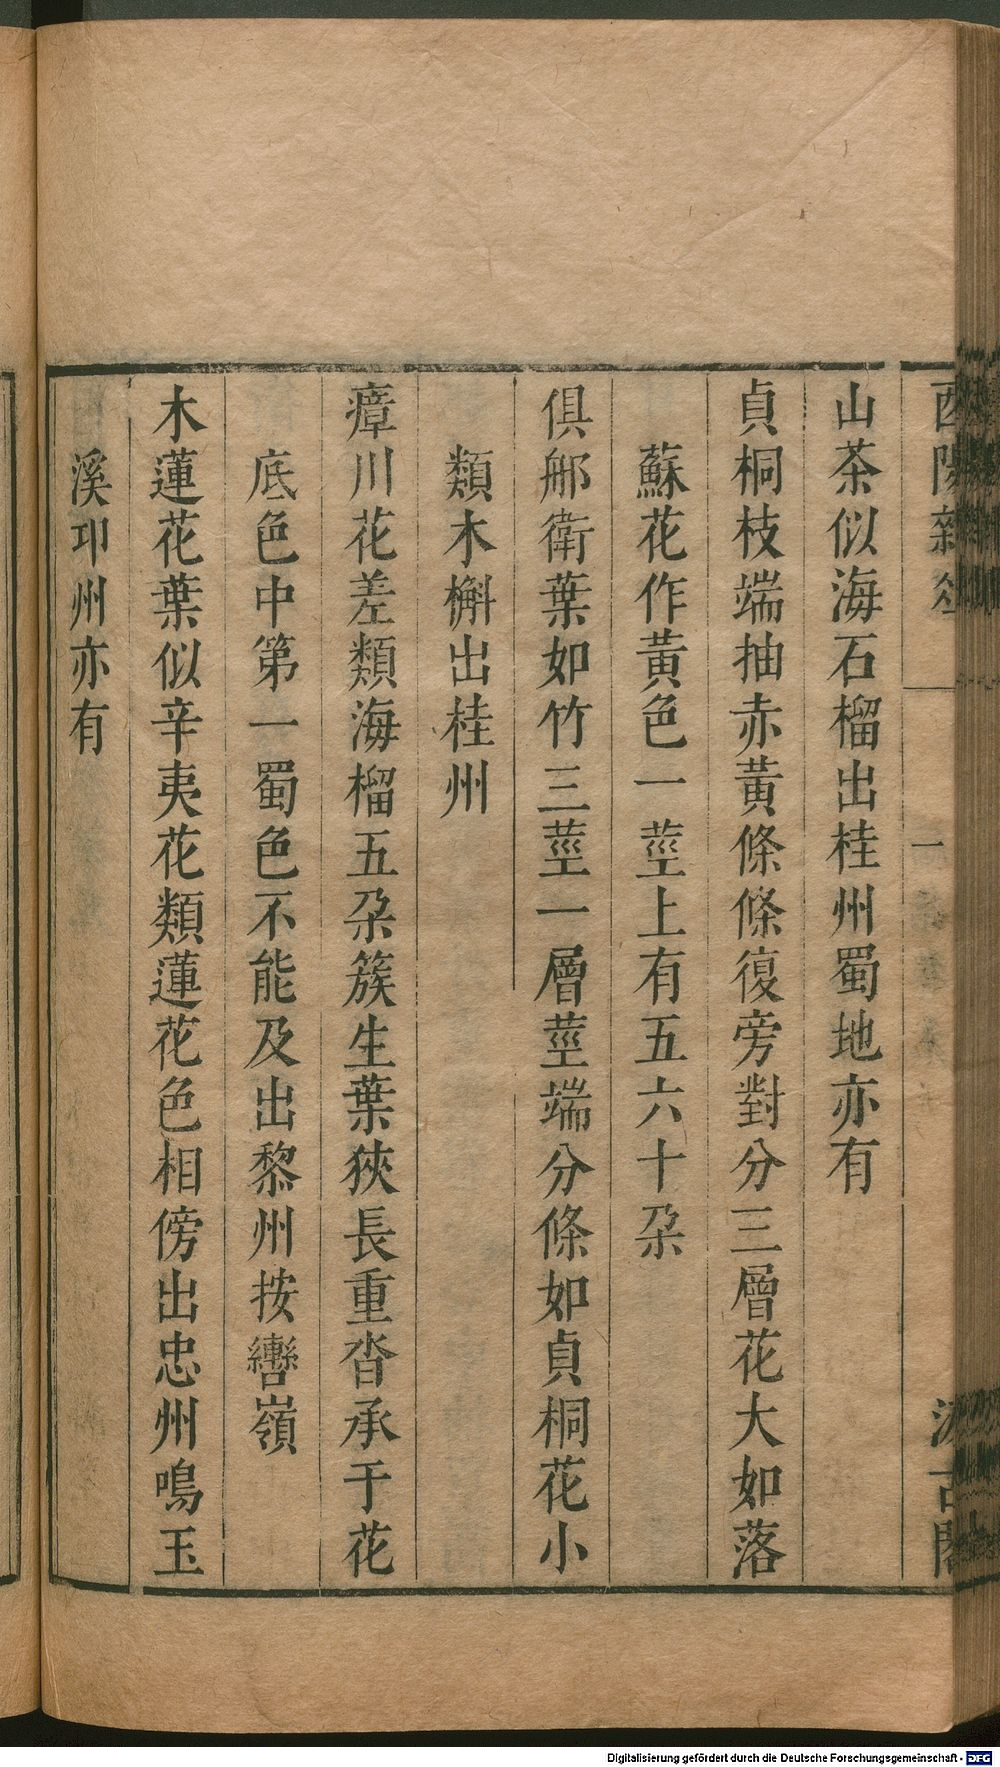 酉陽雜俎
一
汲古閣
山茶似海石榴出桂州蜀地亦有
貞桐枝端抽赤黃條條復旁對分三層花大如落
蘇花作黃色一莖上有五六十朶
俱𨚗衛葉如竹三莖一層莖端分條如貞桐花小
類木槲出桂州
瘴川花差類海榴五朶簇生葉狹長重沓承于花
底色中第一蜀色不能及出黎州按轡嶺
木蓮花葉似辛夷花類蓮花色相傍出忠州鳴玉
溪卭州亦有
Digitalisierung gefördert durch die Deutsche Forschungsgemeinschaft - DFG